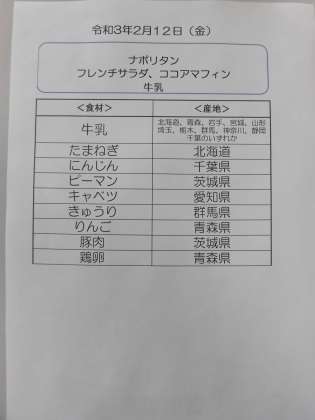 令和3年2月12日（金）
ナポリタン
フレンチサラダ、ココアマフィン
牛乳
＜食材＞ ＜産地＞
牛乳 北海道、青森、岩手、宮城、山形
埼玉、栃木、群馬、神奈川、静岡
千葉のいずれか
たまねぎ 北海道
にんじん 千葉県
ピーマン 茨城県
キャベツ 愛知県
きゅうり 群馬県
りんご 青森県
豚肉 茨城県
鶏卵 青森県